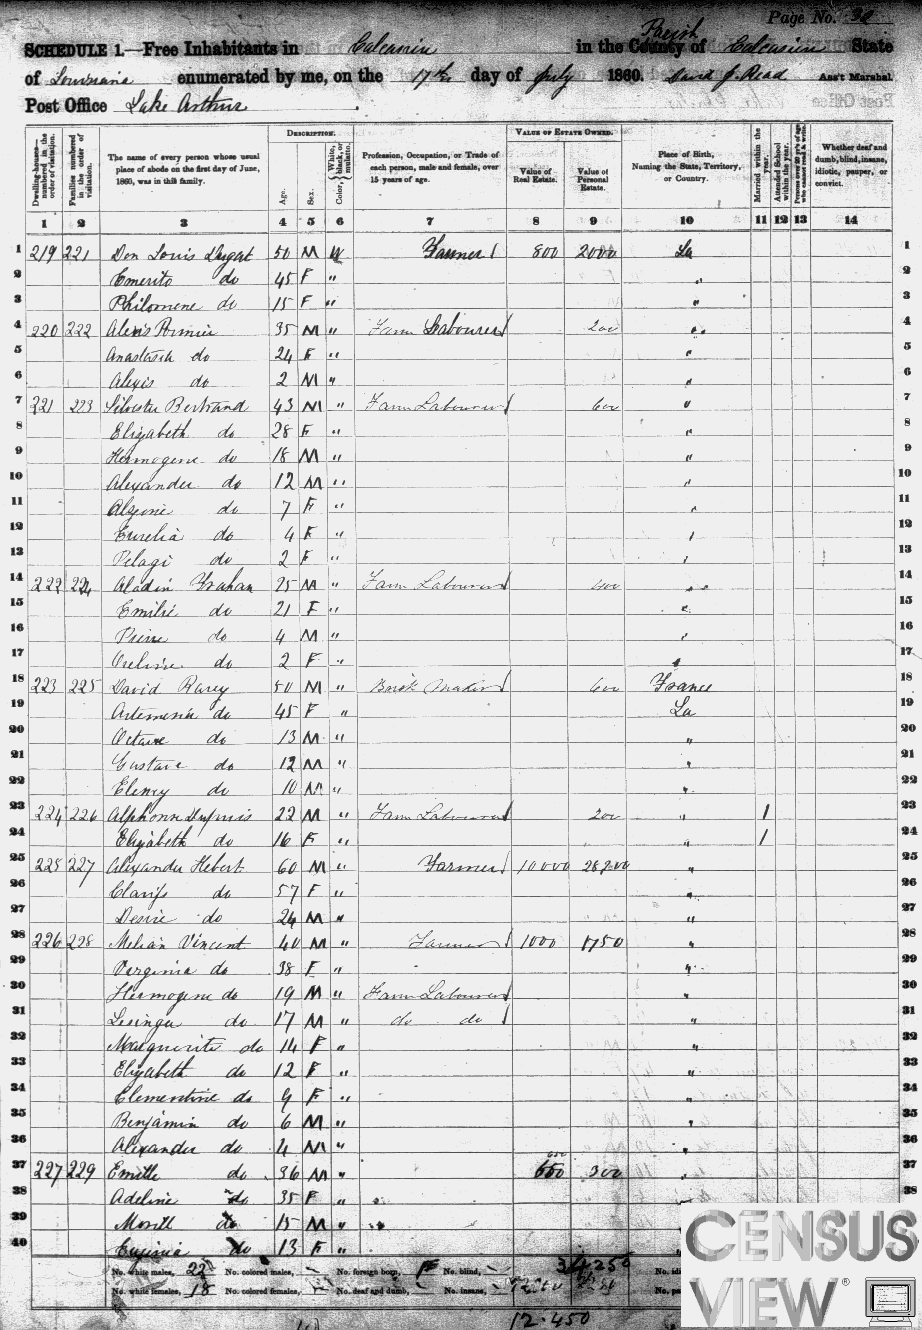 Page No. 30
SCHEDULE 1.—Free Inhabitants in Calcasieu in the County of Parish Calcasieu State
of Louisiana enumerated by me, on the 17th day of July 1860. David J. Read Ass't Marshal.
Post Office Lake Arthur
Dwelling-houses—numbered in the order of visitation.
Families numbered in the order of visitation.
The name of every person whose usual place of abode on the first day of June, 1860, was in this family.
DESCRIPTION.
Age.
Sex.
Color, White, black, or mulatto.
Profession, Occupation, or Trade of each person, male and female, over 15 years of age.
VALUE OF ESTATE OWNED.
Value of Real Estate.
Value of Personal Estate.
Place of Birth, Naming the State, Territory, or Country.
Married within the year.
Attended School within the year.
Persons over 20 y'rs of age who cannot read & write.
Whether deaf and dumb, blind, insane, idiotic, pauper, or convict.
1 2 3 4 5 6 7 8 9 10 11 12 13 14
1 219 221 Don Louis Dugat 50 M W Farmer 800 2000 La 1
2 Emerito do 45 F " " 2
3 Philomene do 15 F " " 3
4 220 222 Alexis 35 M " Farm Labourer 200 " 4
5 Anastasia do 24 F " " 5
6 Alexis do 2 M " " 6
7 221 223 Silvester Bertrand 43 M " Farm Labourer 600 " 7
8 Elizabeth do 28 F " " 8
9 Hermogene do 18 M " " 9
10 Alexander do 12 M " " 10
11 do 7 F " " 11
12 Eurelia do 4 F " " 12
13 Pelagi do 2 F " " 13
14 222 224 Aladin 25 M " Farm Labourer 400 " 14
15 Emilie do 21 F " " 15
16 Pierre do 4 M " " 16
17 do 2 F " " 17
18 223 225 David Rarey 50 M " Brick Maker 600 France 18
19 Artemesia do 45 F " La 19
20 Octave do 13 M " " 20
21 Gustave do 12 M " " 21
22 do 10 M " " 22
23 224 226 Alphonse Dupuis 22 M " Farm Labourer 200 " 1 23
24 Elizabeth do 16 F " " 1 24
25 225 227 Alexander Hebert 60 M " Farmer 10000 " 25
26 do 57 F " " 26
27 Desire do 24 M " " 27
28 226 228 Vincent 40 M " Farmer 1000 1750 " 28
29 Virginia do 38 F " " 29
30 Hermogene do 19 M " Farm Labourer " 30
31 do 17 M " do do " 31
32 Marguerite do 14 F " " 32
33 Elizabeth do 12 F " " 33
34 Clementine do 9 F " " 34
35 Benjamin do 6 M " " 35
36 Alexander do 4 M " " 36
37 227 229 Emille do 36 M " 650 600 300 " 37
38 Adeline do 35 F " 38
39 do 15 M " 39
40 Euginia do 13 F "
No. white males, 22 No. colored males, No. foreign born, No. blind, 34250
No. white females, 18 No. colored females, No. deaf and dumb, No. insane,
12.450
CENSUS
VIEW®